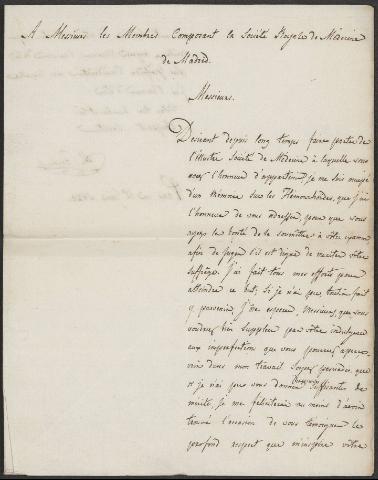 A Messieurs les Membres Composant la Société Royale de Médecine
de Madrid.
Messieurs.
Desirant depuis long temps faire partie de
l'illustre Société de Médecine à laquelle vous
avez l'honneur d'appartenir, je me suis occupé
d'un Mémoire sur les Hémorrhoïdes, que j'ai
l'honneur de vous adresser, pour que vous
ayez la bonté de le soumettre à votre examen
afin de juger s'il est digne de mériter votre
suffrage. J'ai fait tous mes efforts pour
atteindre ce but, si je n'ai pas toutafait
y parvenir, j'ose esperer, Messieurs, que vous
voudrez bien suppléer par votre indulgence
aux imperfections que vous pourrez apercevoir
dans mon travail. Soyez persuadés que
si je n'ai pas vous donner preuves suffisantes de
mérite, je me féliciterai au moins d'avoir
trouvé l'occasion de vous témoigner le
profond respect que m'inspire votre